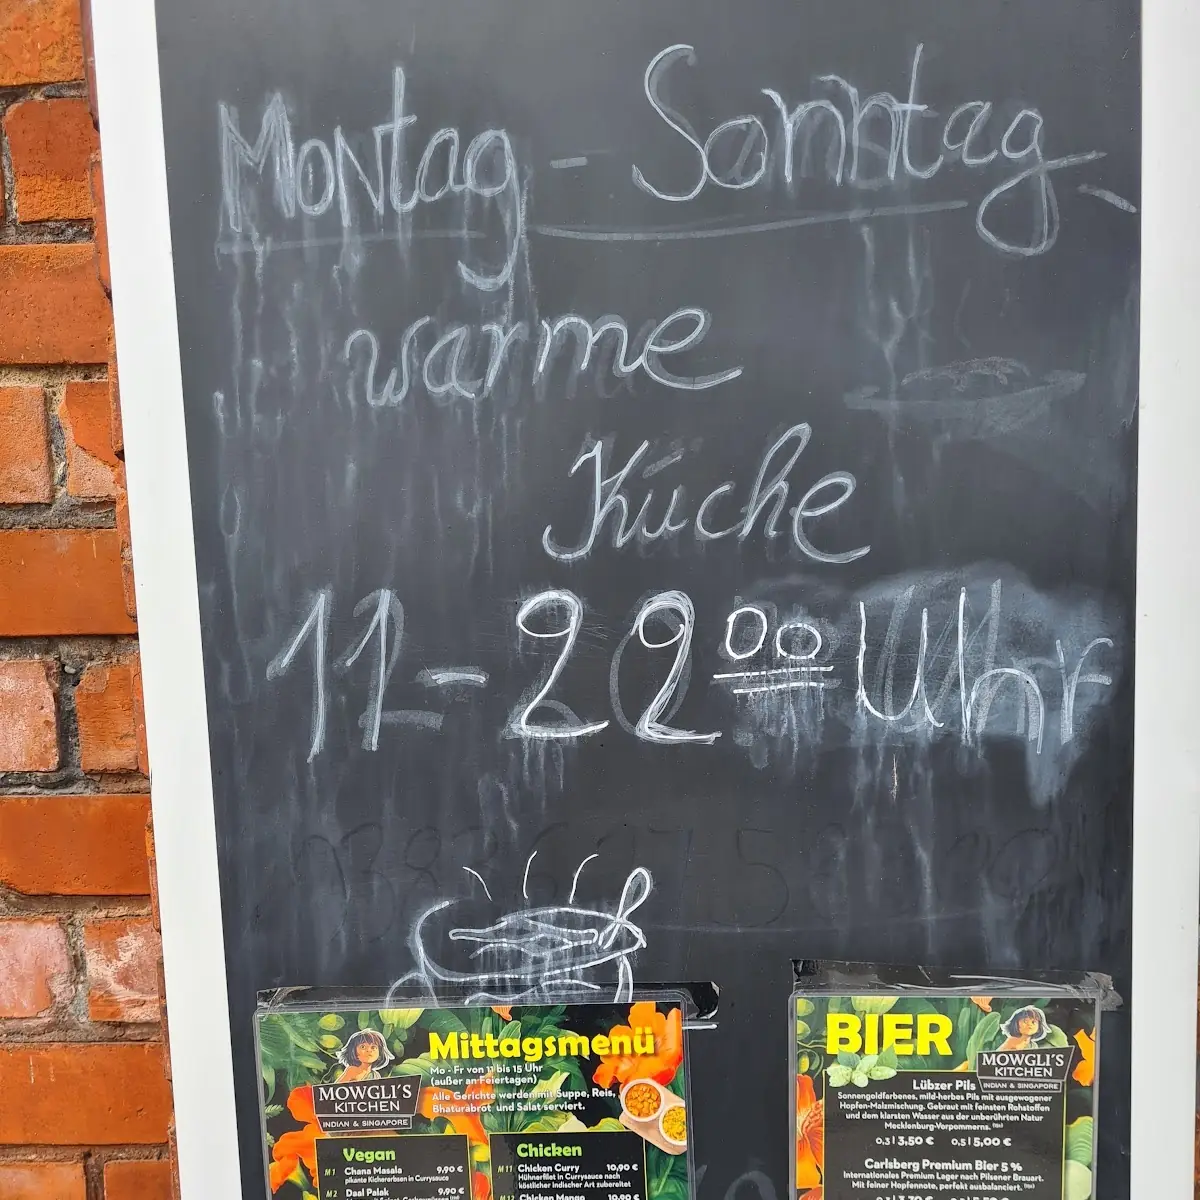 Montag - Sonntag
warme
Küche
11-22 00 Uhr
Mittagsmenü
Mo - Fr von 11 bis 15 Uhr
(außer an Feiertagen)
Alle Gerichte werden mit Suppe, Reis,
Bhaturabrot und Salat serviert.
MOWGLI'S
KITCHEN
INDIAN & SINGAPORE
Vegan
M1 Chana Masala 9,90 €
pikante Kichererbsen in Currysauce
M2 Daal Palak 9,90 €
Chicken
M11 Chicken Curry 10,90 €
Hühnerfilet in Currysauce nach
köstlicher indischer Art zubereitet
M12 Chicken Mango 10,90 €
BIER
MOWGLI'S
KITCHEN
INDIAN & SINGAPORE
Lübzer Pils
Sonnengoldfarbenes, mild-herbes Pils mit ausgewogener
Hopfen-Malzmischung. Gebraut mit feinsten Rohstoffen
und dem klarsten Wasser aus der unberührten Natur
Mecklenburg-Vorpommerns.
0,3 l 3,50 € 0,5 l 5,00 €
Carlsberg Premium Bier 5 %
Internationales Premium Lager nach Pilsener Brauart.
Mit feiner Hopfennote, perfekt ausbalanciert.